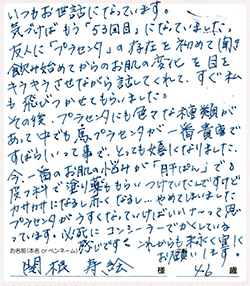 いつもお世話になっています。
気づけばもう「53回目」になっていました。
友人に「プラセンタ」の存在を初めて聞き
飲み始めてからのお肌の変化を目を
キラキラさせながら話してくれて、すぐ私
も飛びつかせてもらいました。
その後、プラセンタにも色々な種類が
あって中でも馬プラセンタが一番貴重で
すばらしいって事で、とても嬉しくなりました。
今一番のお肌の悩みが「肝ぱん」で
皮ふ科で塗り薬ももらいつけていたんですけど
カサカサになるし赤くなるし…やめてしまいました
プラセンタがうすくなっていけばいいナ〜って思
っています。必死にコンシーラーでかくしている
感じです。これからも末永く宜しく
お願いします。
お名前(本名 or ペンネーム)
関根 寿絵 様 46 歳